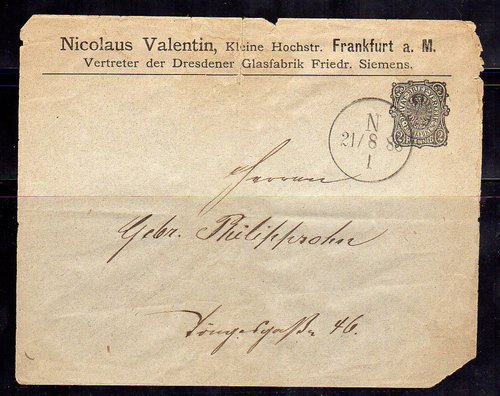 Nicolaus Valentin, Kleine Hochstr. Frankfurt a. M.
Vertreter der Dresdener Glasfabrik Friedr. Siemens.
N
21/8 8
1
2 2
Herren
Gebr. Philippsohn
Töngesgaße 46.